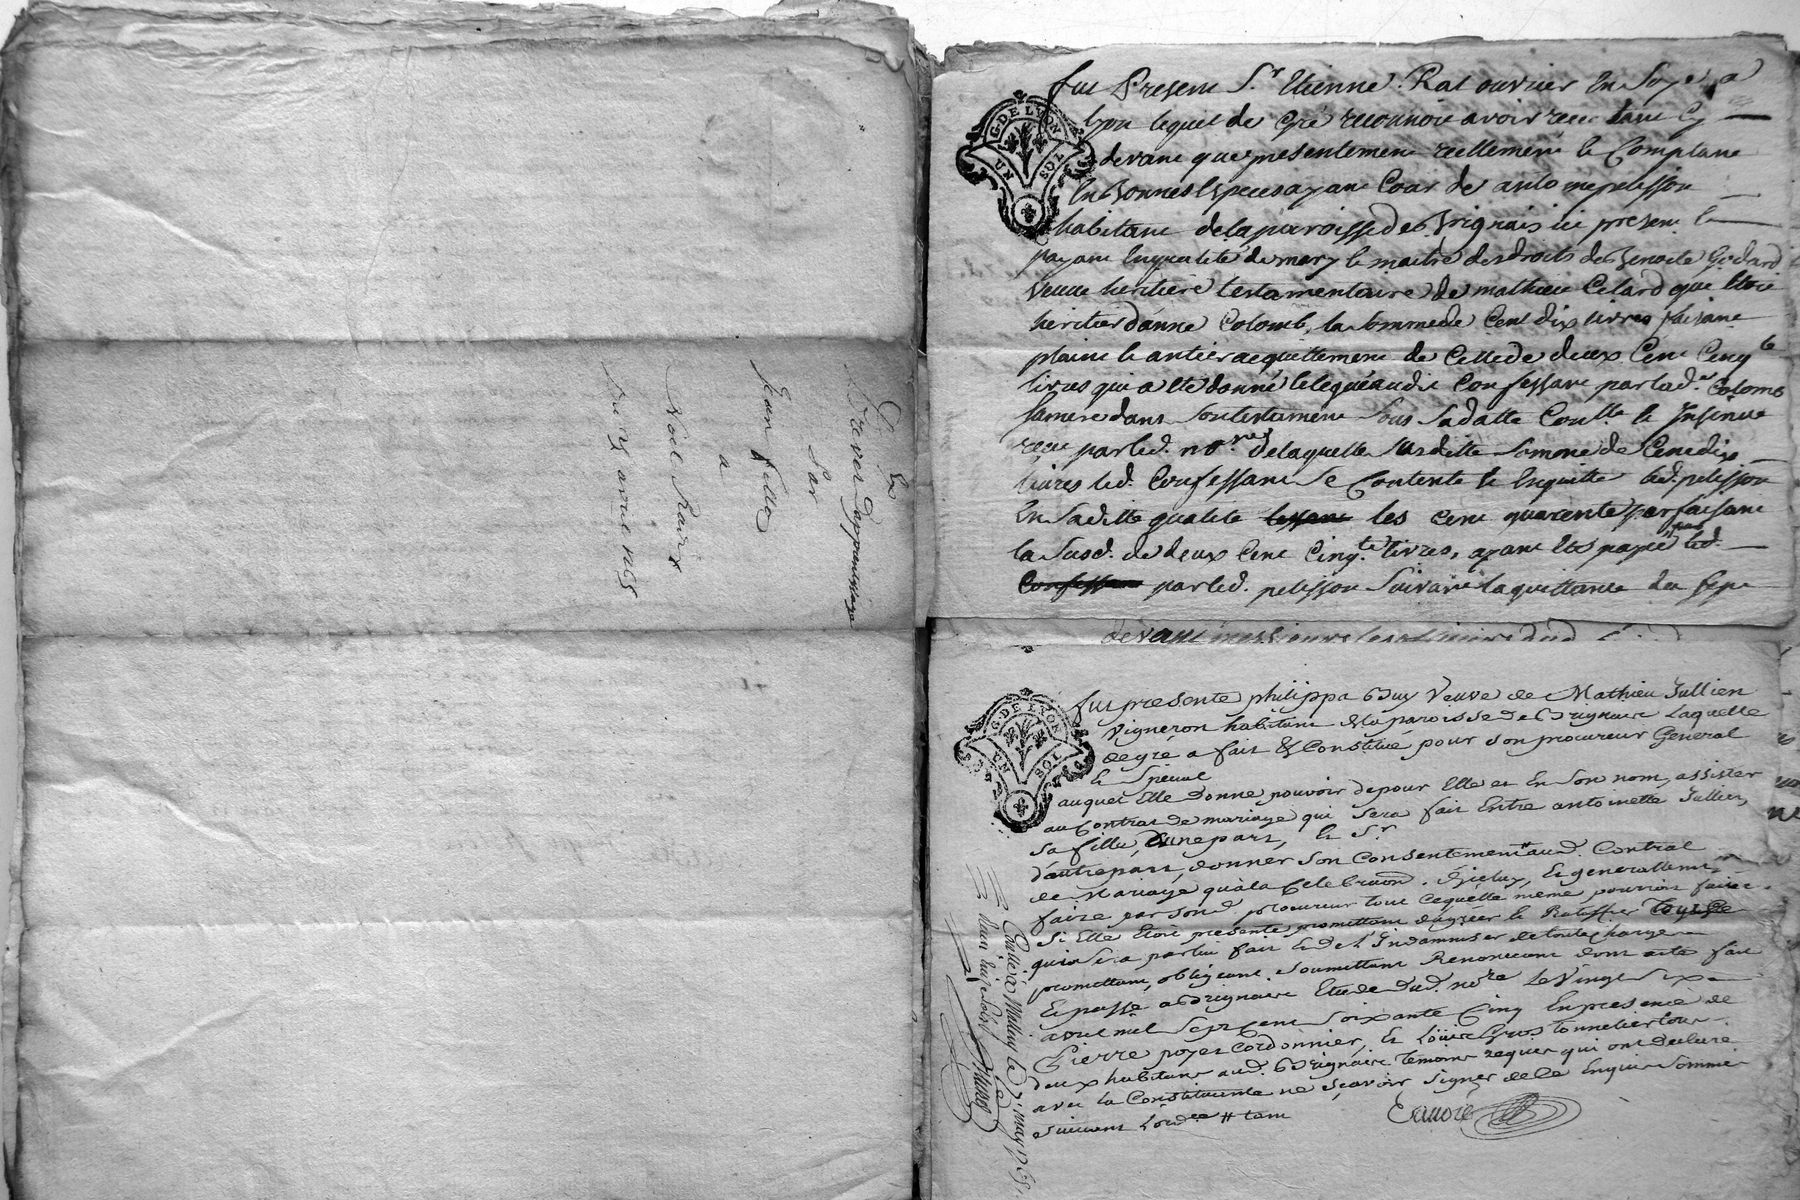 Brevet d'apprentissage
par
Jean Fille
a
Noel
Du 25 avril 1765
G. DE LYON
UN SOL
fut Present Sr. Etienne Rat ouvrier en Soye a
Lyon lequel de Gré reconnoit avoir receu tant Cy
devant que presentement reellement et Comptant
En Bonnes Especes ayant Cour de antoine pelisson
habitant de la paroisse de Brignais ici present et
payant En qualité de mary et maitre des droits de Benoite Gelard
veuve heritiere testamentaire de mathieu Celard qui Etoit
heritier d'anne Colomb, la somme de Cent dix livres faisant
plaine et antier acquittement de Celle de deux Cent Cinqte
livres qui a été donné et legué audit Confessant par lad.e Colomb
sa mere dans son testament sous sa datte Conllé et Insinué
receu par led. nore. de laquelle susditte somme de Cent dix
livres led. Confessant se Contente et En quitte led. pelisson
En saditte qualité les cent quarente parfaisant
la susd. de deux Cent Cinqte. livres, ayant été payé par led.
Confessant par led. pelisson suivant la quittance du
devant
G. DE LYON
UN SOL
fut presente philippa Guy Veuve de Mathieu Jullien
Vigneron habitant de la paroisse de Brignais Laquelle
de gré a fait & Constitué pour son procureur General
Et Special
auquel Elle donne pouvoir de pour Elle et En Son nom, assister
au Contrat de mariage qui sera fait Entre antoinette Jullien,
sa fille, D'une part, Et Sr.
d'autre part, donner son Consentement aud. Contrat
de Mariage qu'a la Celebraon. d'jceluy, Et generallement
faire par sond. procureur tout ce quelle meme pourroit faire
si Elle Etoit presente, promettant d'agréer et Ratiffier
qui sera par lui fait Et de l'Indamniser de toute charge
promettant, obligeant, soumettant Renonceant dont acte fait
Et passé a Brignais Etude dud. nore Le Vingt Six
avril mil sept cent soixante Cinq En presence de
Pierre poyet Cordonnier, Et Loüis Gros tonnelier tous
deux habitans aud. Brignais temoins requis qui ont declaré
avec la Constituante ne sçavoir signer de ce Enquis Sommés
suivant l'ordce
Controllé a Millery le 7 may 1765